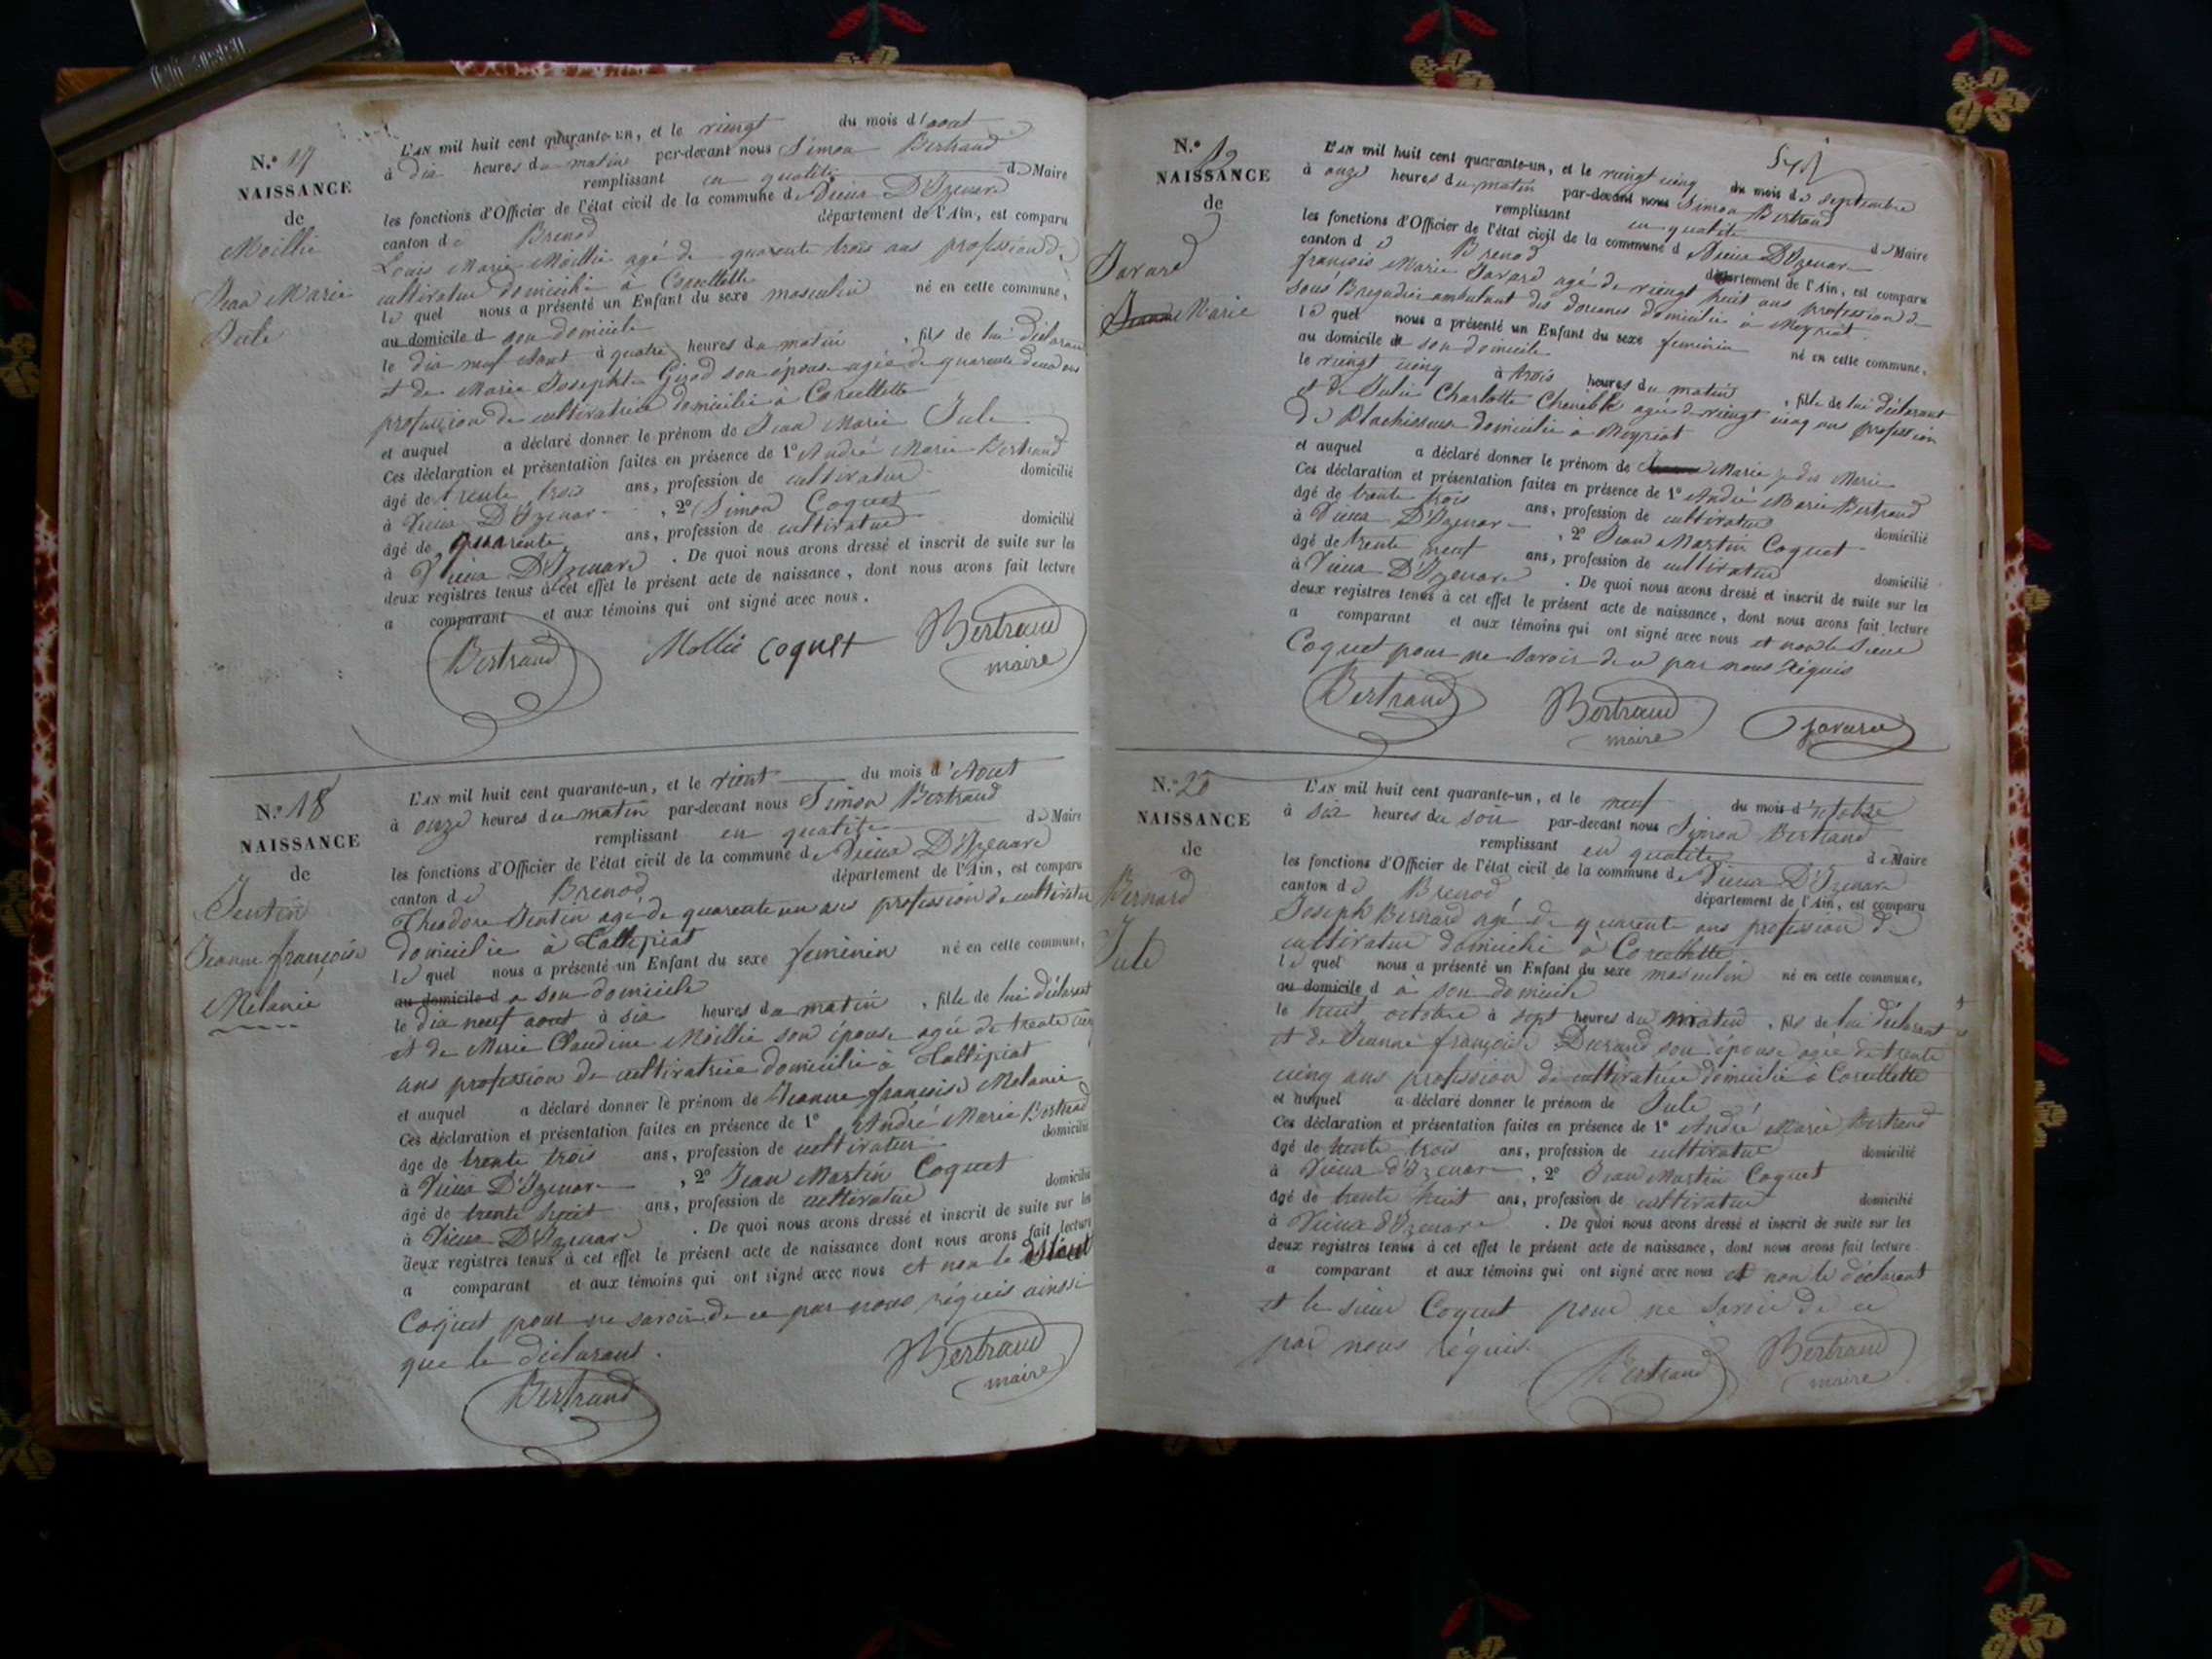 N.° 17
NAISSANCE
de
Moillié
Jean Marie
Jule
L'AN mil huit cent quarante-un, et le vingt du mois d'aout
à dix heures du matin par-devant nous Simon Bertrand
remplissant en qualité de Maire
les fonctions d'Officier de l'état civil de la commune de Vieux D'Izenave
canton de Brenod département de l'Ain, est comparu
Louis Marie Moillié agé de quarente trois ans profession de
cultivateur domicilié à Corcellette
le quel nous a présenté un Enfant du sexe masculin né en cette commune,
au domicile d son domicile
le dix neuf aout à quatre heures du matin , fils de lui déclarant
et de Marie Josephte Girod son épouse agée de quarente deux ans
profession de cultivatrice domicilié à Corcellette
et auquel a déclaré donner le prénom de Jean Marie Jule
Ces déclaration et présentation faites en présence de 1° André Marie Bertrand
âgé de trente trois ans, profession de cultivateur domicilié
à Vieux D'Izenave , 2° Simon Coquet
âgé de quarente ans, profession de cultivateur domicilié
à Vieux D'Izenave . De quoi nous avons dressé et inscrit de suite sur les
deux registres tenus à cet effet le présent acte de naissance, dont nous avons fait lecture
a comparant et aux témoins qui ont signé avec nous.
Bertrand Mollié Coquet Bertrand
maire
N.° 18
NAISSANCE
de
Jentin
Jeanne françoise
Melanie
L'AN mil huit cent quarante-un, et le vient du mois d'Aout
à onze heures du matin par-devant nous Simon Bertrand
remplissant en qualité de Maire
les fonctions d'Officier de l'état civil de la commune de Vieux D'Izenave
canton de Brenod département de l'Ain, est comparu
Theodore Jentin agé de quarente un ans profession de cultivateur
domicilié à
le quel nous a présenté un Enfant du sexe feminin né en cette commune,
au domicile d a son domicile
le dix neuf aout à six heures du matin , fille de lui déclarant
et de Marie Claudine Moillié son épouse agée de trente cinq
ans profession de cultivatrice domicilié à
et auquel a déclaré donner le prénom de Jeanne françoise Melanie
Ces déclaration et présentation faites en présence de 1° André Marie Bertrand
âgé de trente trois ans, profession de cultivateur domicilié
à Vieux D'Izenave , 2° Jean Martin Coquet
âgé de trente huit ans, profession de cultivateur domicilié
à Vieux D'Izenave . De quoi nous avons dressé et inscrit de suite sur les
deux registres tenus à cet effet le présent acte de naissance dont nous avons fait lecture
a comparant et aux témoins qui ont signé avec nous et non le
Coquet pour ne savoir de ce par nous réquis ainsi
que le déclarant.
Bertrand Bertrand
maire
N.° 19
NAISSANCE
de
Savard
Jeanne Marie
L'AN mil huit cent quarante-un, et le vingt cinq du mois de septembre
à onze heures du matin par-devant nous Simon Bertrand
remplissant en qualité de Maire
les fonctions d'Officier de l'état civil de la commune d Vieux D'Izenave
canton d e Brenod département de l'Ain, est comparu
françois Marie Savard agé de vingt huit ans profession de
sous Brigadier ambulant des douanes domicilié à Meyriat
le quel nous a présenté un Enfant du sexe feminin né en cette commune,
au domicile de son domicile
le vingt cinq à trois heures du matin , fille de lui déclarant
et de Julie Charlotte agée de vingt cinq ans profession
de domicilié a Meyriat
et auquel a déclaré donner le prénom de Marie je dis Marie
Ces déclaration et présentation faites en présence de 1° André Marie Bertrand
âgé de trente trois ans, profession de cultivateur domicilié
à Vieux D'Izenave , 2° Jean Martin Coquet
âgé de trente neuf ans, profession de cultivateur domicilié
à Vieux D'Izenave . De quoi nous avons dressé et inscrit de suite sur les
deux registres tenus à cet effet le présent acte de naissance, dont nous avons fait lecture
a comparant et aux témoins qui ont signé avec nous et non le Sieur
Coquet pour ne savoir de ce par nous réquis
Bertrand Bertrand Savard
maire
N.° 20
NAISSANCE
de
Bernard
Jule
L'AN mil huit cent quarante-un, et le neuf du mois d'octobre
à six heures du soir par-devant nous Simon Bertrand
remplissant en qualité de Maire
les fonctions d'Officier de l'état civil de la commune de Vieux D'Izenave
canton de Brenod département de l'Ain, est comparu
Joseph Bernard agé de quarente ans profession de
cultivateur domicilié à Corcellette
le quel nous a présenté un Enfant du sexe masculin né en cette commune,
au domicile d à son domicile
le huit octobre à sept heures du matin , fils de lui déclarant
et de Jeanne françoise Durand son épouse agée de trente
cinq ans profession de cultivatrice domicilié à Corcellette
et auquel a déclaré donner le prénom de Jule
Ces déclaration et présentation faites en présence de 1° André Marie Bertrand
âgé de trente trois ans, profession de cultivateur domicilié
à Vieux d'Izenave , 2° Jean Martin Coquet
âgé de trente huit ans, profession de cultivateur domicilié
à Vieux d'Izenave . De quoi nous avons dressé et inscrit de suite sur les
deux registres tenus à cet effet le présent acte de naissance, dont nous avons fait lecture
a comparant et aux témoins qui ont signé avec nous et non le déclarant
et le sieur Coquet pour ne savoir de ce
par nous réquis.
Bertrand Bertrand
maire